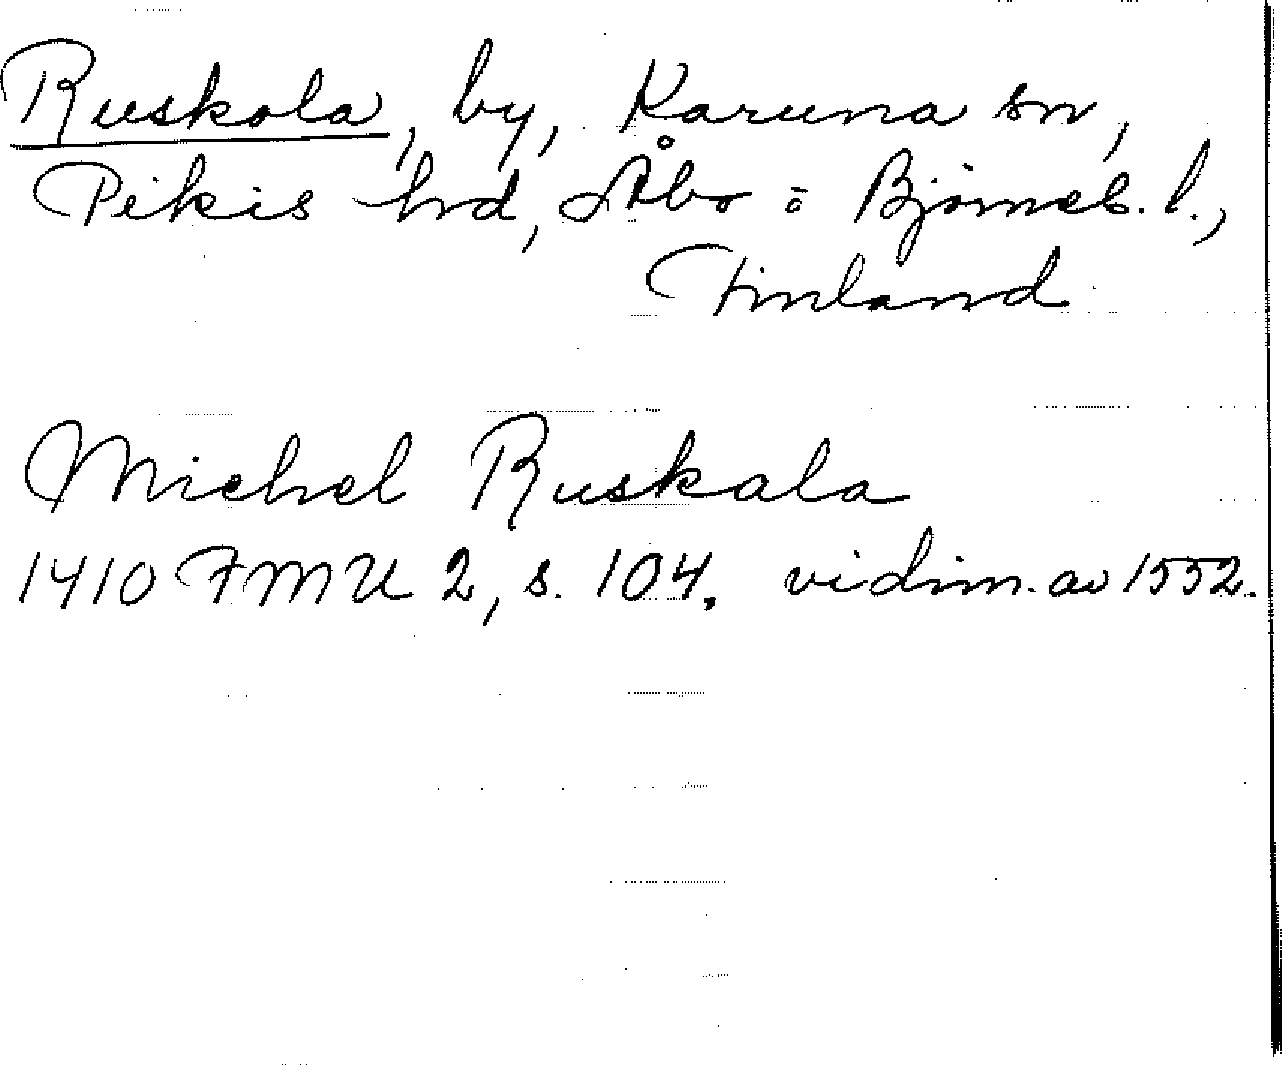 Ruskola, by, Karuna sn,
Pikis hrd, Åbo o Björneb. l.,
Finland
Michel Ruskala
1410 FMU 2, s. 104. vidim. av 1552.